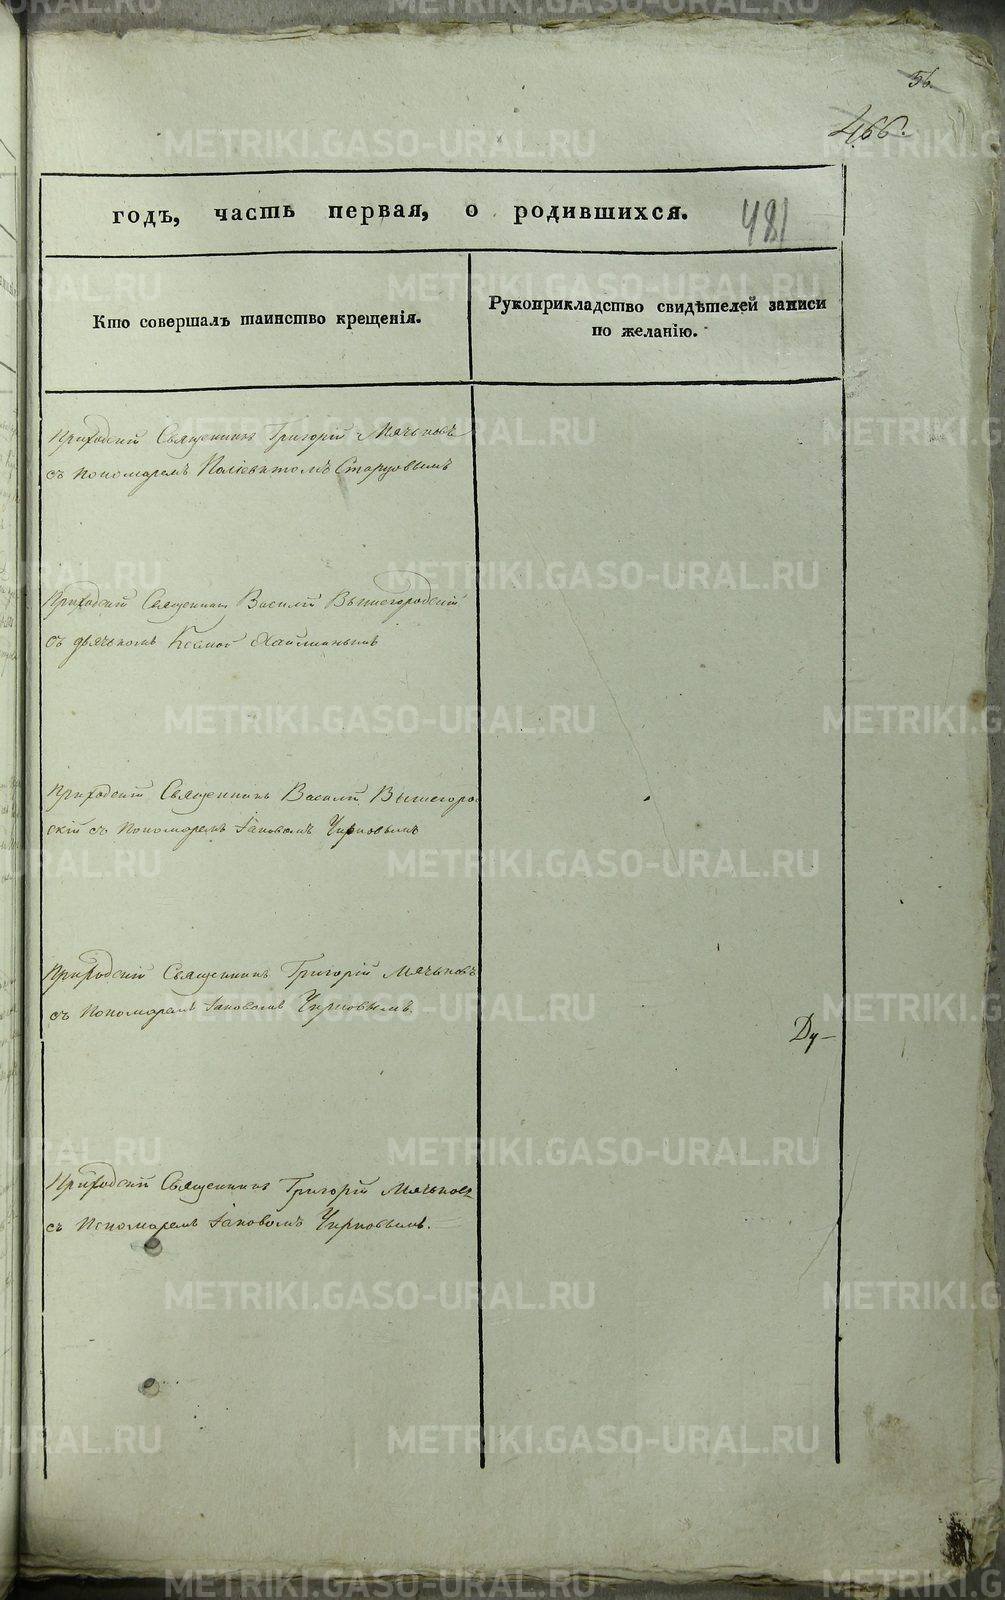 56.
466.
годъ, часть первая, о родившихся.
481
Кто совершалъ таинство крещенія.
Рукоприкладство свидѣтелей записи
по желанію.
Приходскій Священникъ Григорій Мячьковъ
съ пономаремъ Поліевктомъ Старцовымъ
Приходскій Священникъ Василій Вышегородскій
съ дьячькомъ Космой
Приходскій Священникъ Василій Вышегород
скій съ Пономаремъ Іаковомъ Чирковымъ
Приходскій Священникъ Григорій Мячьковъ
съ Пономаремъ Іаковомъ Чирковымъ.
Ду-
Приходскій Священникъ Григорій Мячьковъ
съ Пономаремъ Іаковомъ Чирковымъ.
METRIKI.GASO-URAL.RU